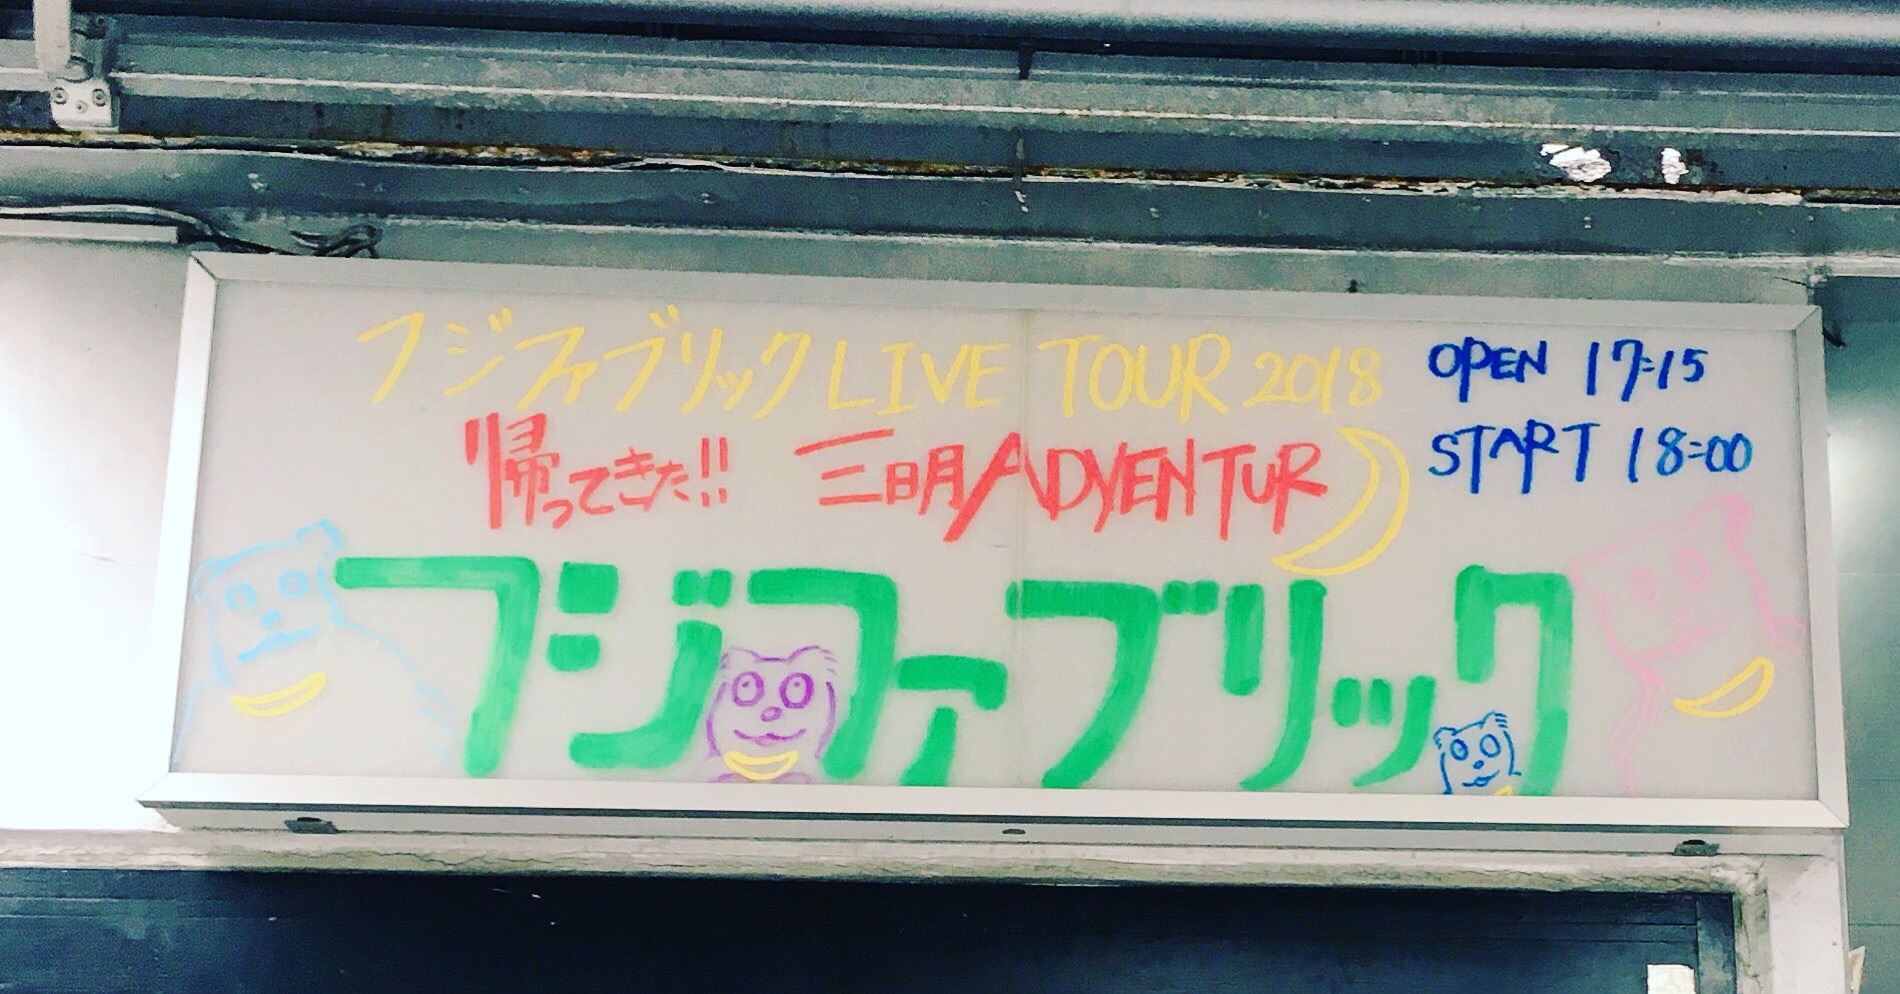 フジファブリック LIVE TOUR 2018
帰ってきた!! 三日月ADVENTUR
OPEN 17:15
START 18:00
フジファブリック